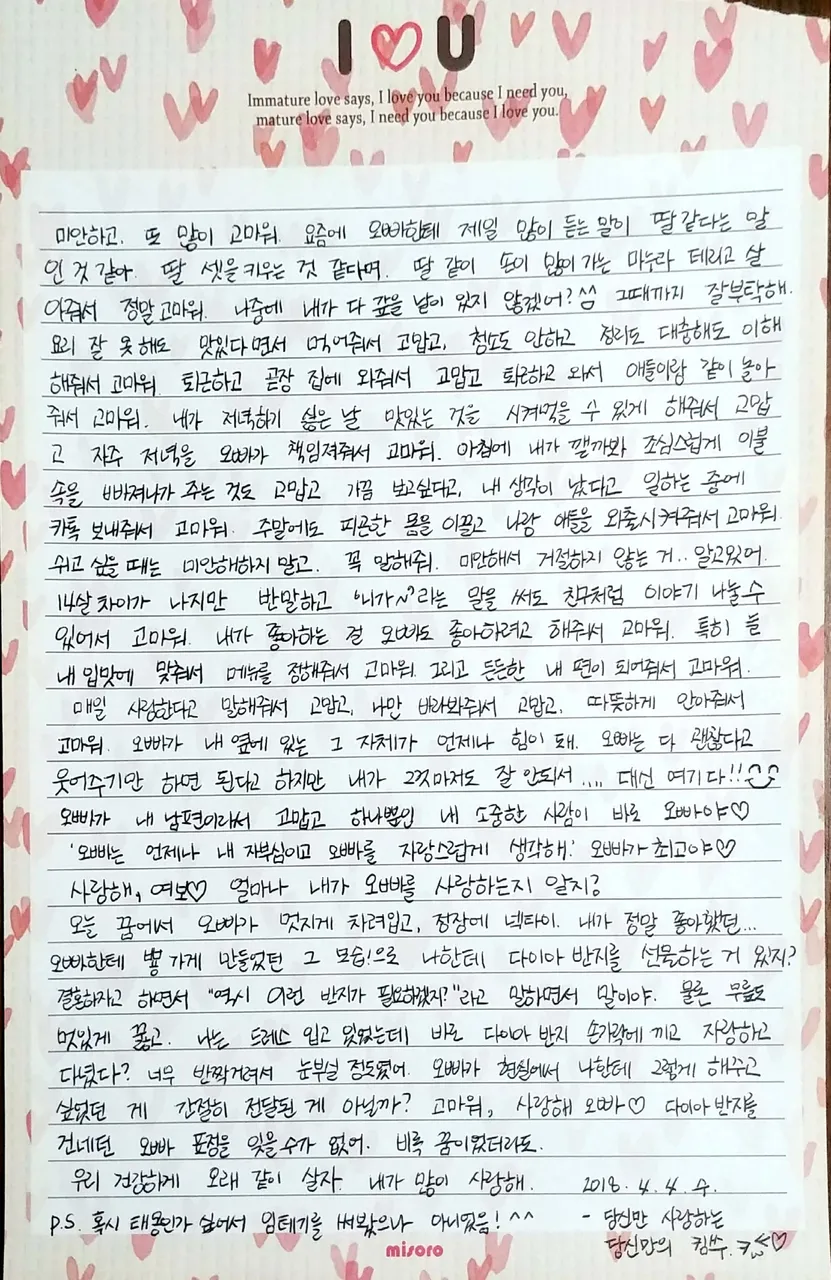 I ♡ U
Immature love says, I love you because I need you,
mature love says, I need you because I love you.
미안하고. 또 많이 고마워. 요즘에 오빠한테 제일 많이 듣는 말이 딸같다는 말
인 것 같아. 딸 셋을 키우는 것 같다며. 딸 같이 손이 많이 가는 마누라 데리고 살
아줘서 정말 고마워. 나중에 내가 다 갚을 날이 있지 않겠어? ^^ 그때까지 잘부탁해.
요리 잘 못 해도 맛있다면서 먹어줘서 고맙고, 청소도 안하고 정리도 대충해도 이해
해줘서 고마워. 퇴근하고 곧장 집에 와줘서 고맙고 퇴근하고 와서 애들이랑 같이 놀아
줘서 고마워. 내가 저녁하기 싫은 날 맛있는 것을 시켜먹을 수 있게 해줘서 고맙
고 자주 저녁을 오빠가 책임져줘서 고마워. 아침에 내가 깰까봐 조심스럽게 이불
속을 빠져나가 주는 것도 고맙고 가끔 보고싶다고, 내 생각이 났다고 일하는 중에
카톡 보내줘서 고마워. 주말에도 피곤한 몸을 이끌고 나랑 애들을 외출시켜줘서 고마워.
쉬고 싶을 때는 미안해하지 말고. 꼭 말해줘. 미안해서 거절하지 않는 거.. 알고있어.
14살 차이가 나지만 반말하고 '니가~'라는 말을 써도 친구처럼 이야기 나눌 수
있어서 고마워. 내가 좋아하는 걸 오빠도 좋아하려고 해줘서 고마워. 특히 늘
내 입맛에 맞춰서 메뉴를 정해줘서 고마워. 그리고 든든한 내 편이 되어줘서 고마워.
매일 사랑한다고 말해줘서 고맙고, 나만 바라봐줘서 고맙고, 따뜻하게 안아줘서
고마워. 오빠가 내 옆에 있는 그 자체가 언제나 힘이 돼. 오빠는 다 괜찮다고
웃어주기만 하면 된다고 하지만 내가 그것마저도 잘 안되서.... 대신 여기다!!
오빠가 내 남편이라서 고맙고 하나뿐인 내 소중한 사람이 바로 오빠야♡
'오빠는 언제나 내 자부심이고 오빠를 자랑스럽게 생각해.' 오빠가 최고야♡
사랑해, 여보♡ 얼마나 내가 오빠를 사랑하는지 알지?
오늘 꿈에서 오빠가 멋지게 차려입고, 정장에 넥타이. 내가 정말 좋아했던...
오빠한테 뿅 가게 만들었던 그 모습!으로 나한테 다이아 반지를 선물하는 거 있지?
결혼하자고 하면서 "역시 이런 반지가 필요하겠지?"라고 말하면서 말이야. 물론 무릎도
멋있게 꿇고. 나는 드레스 입고 있었는데 바로 다이아 반지 손가락에 끼고 자랑하고
다녔다? 너무 반짝거려서 눈부실 정도였어. 오빠가 현실에서 나한테 그렇게 해주고
싶었던 게 간절히 전달된 게 아닐까? 고마워, 사랑해 오빠♡ 다이아 반지를
건네던 오빠 표정을 잊을수가 없어. 비록 꿈이었더라도.
우리 건강하게 오래 같이 살자. 내가 많이 사랑해. 2018. 4. 4. 수.
P.S. 혹시 태몽인가 싶어서 임테기를 써봤으나 아니었음! ^^ - 당신만 사랑하는
당신만의 ♡
misoro